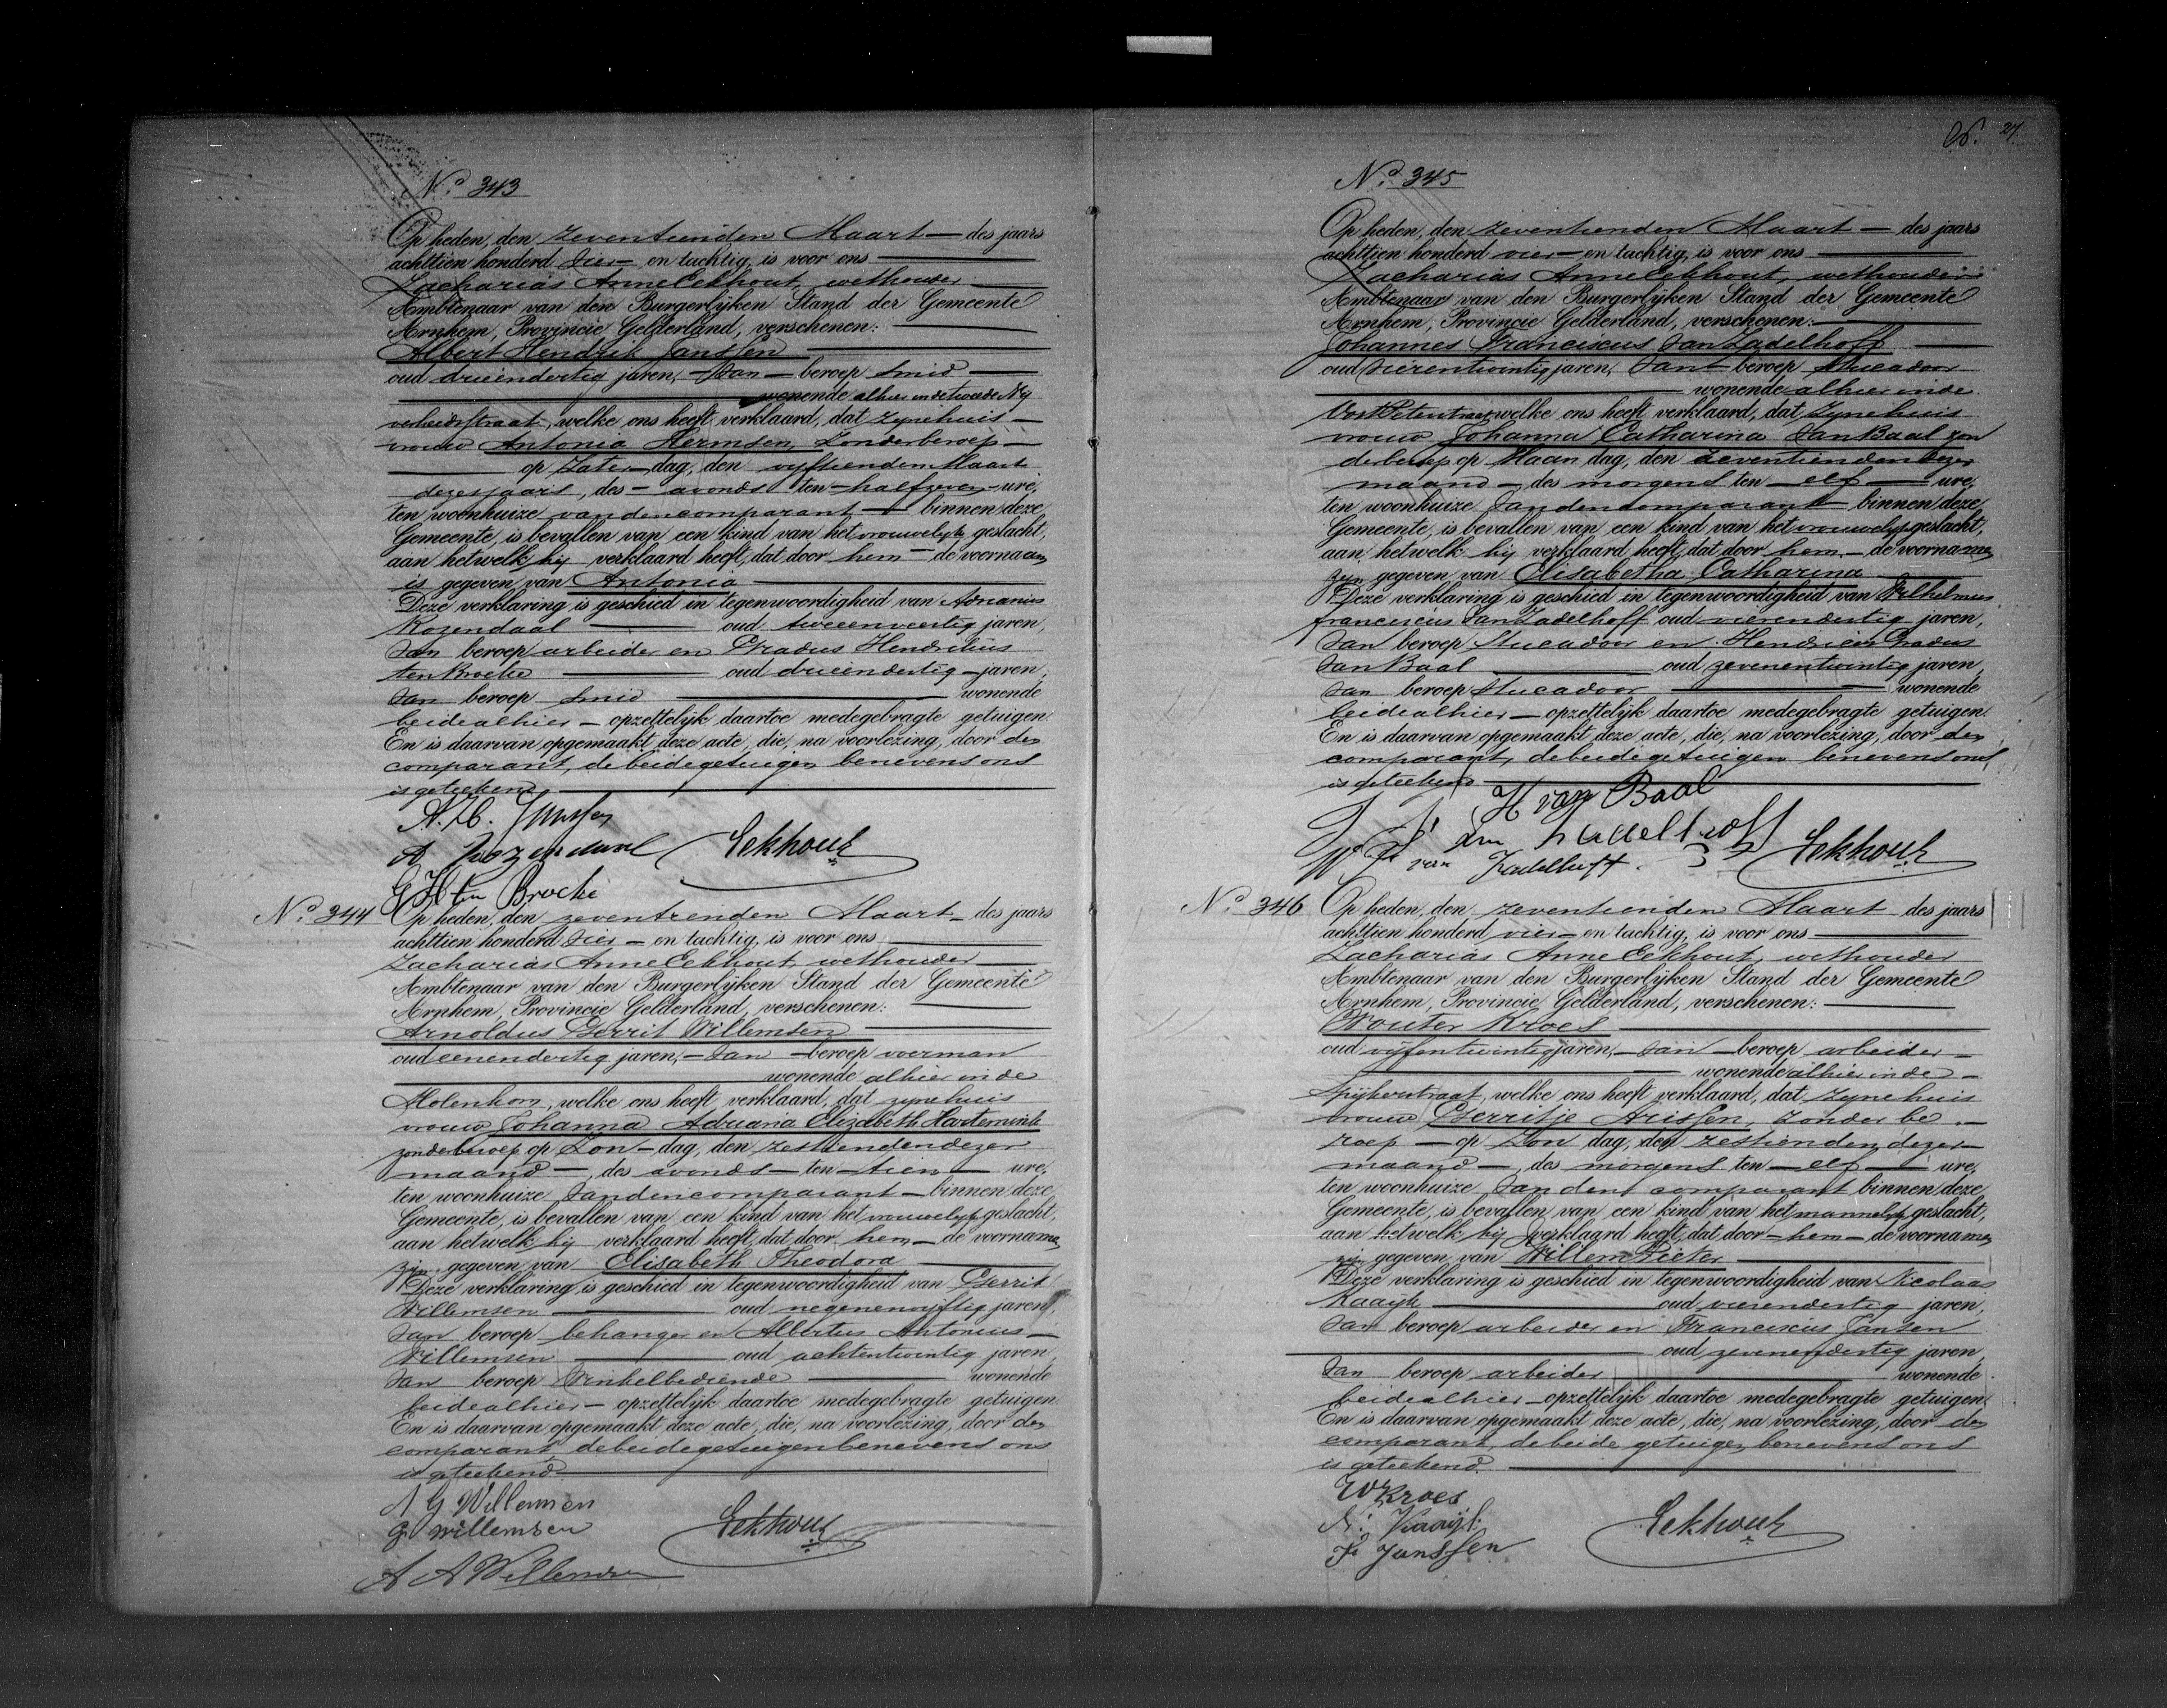 No. 343
Op heden, den zeventienden Maart — des jaars
achttien honderd vier — en tachtig, is voor ons
Zacharias Anne Eekhout, wethouder
Ambtenaar van den Burgerlijken Stand der Gemeente
Arnhem, Provincie Gelderland, verschenen:
Albert Hendrik Janssen
oud drieendertig jaren, — van — beroep smid
wonende alhier in de tweede Ny
verheidsstraat, welke ons heeft verklaard, dat zyne huis
vrouw Antonia Hermsen, zonder beroep
op Zater dag, den vyftienden Maart
dezes jaars, des — avonds ten — half zeven — ure,
ten woonhuize van den comparant — binnen deze
Gemeente, is bevallen van een kind van het vrouwelyk geslacht,
aan hetwelk hij verklaard heeft, dat door hem — de voornaam
is gegeven van Antonia
Deze verklaring is geschied in tegenwoordigheid van Adrianus
Rozendaal oud tweeenveertig jaren,
van beroep arbeider en Gradus Hendrikus
ten Broeke oud drieendertig jaren,
van beroep smid wonende
beide alhier — opzettelijk daartoe medegebragte getuigen.
En is daarvan opgemaakt deze acte, die, na voorlezing, door den
comparant, de beide getuigen benevens ons
is geteekend
A. H. Janssen
A Rozendaal Eekhout
G H ten Broeke
No. 344 Op heden, den zeventienden Maart — des jaars
achttien honderd vier — en tachtig, is voor ons
Zacharias Anne Eekhout, wethouder
Ambtenaar van den Burgerlijken Stand der Gemeente
Arnhem, Provincie Gelderland, verschenen:
Arnoldus Gerrit Willemsen
oud eenendertig jaren, — van — beroep voerman
wonende alhier in de
Molenhom, welke ons heeft verklaard, dat zyne huis
vrouw Johanna Adriana Elizabeth Hartemink
zonder beroep op Zon — dag, den zestienden dezer
maand —, des avonds — ten — tien — ure,
ten woonhuize van den comparant — binnen deze
Gemeente, is bevallen van een kind van het vrouwelyk geslacht,
aan hetwelk hij verklaard heeft, dat door hem — de voornamen
zijn gegeven van Elisabeth Theodora
Deze verklaring is geschied in tegenwoordigheid van Gerrit
Willemsen oud negenenvijftig jaren,
van beroep behanger en Albertus Antonius
Willemsen oud achtentwintig jaren,
van beroep Winkelbediende wonende
beide alhier — opzettelijk daartoe medegebragte getuigen
En is daarvan opgemaakt deze acte, die, na voorlezing, door den
comparant de beide getuigen benevens ons
is geteekend
A G Willemsen
G. Willemsen Eekhout
A A Willemsen
26. 27
No. 345
Op heden, den zeventienden Maart — des jaars
achttien honderd vier — en tachtig, is voor ons
Zacharias Anne Eekhout, wethouder
Ambtenaar van den Burgerlijken Stand der Gemeente
Arnhem, Provincie Gelderland, verschenen:
Johannes Franciscus van Zadelhoff
oud vierentwintig jaren, van beroep Stucadoor
wonende alhier in de
welke ons heeft verklaard, dat zyne huis
vrouw Johanna Catharina van Baal zon
der beroep op Maan dag, den zeventienden dezer
maand — des morgens ten — elf — ure,
ten woonhuize van den comparant — binnen deze
Gemeente, is bevallen van een kind van het vrouwelyk geslacht,
aan hetwelk hij verklaard heeft, dat door hem — de voornamen
zyn gegeven van Elisabetha Catharina
Deze verklaring is geschied in tegenwoordigheid van Wilhelmus
franciscus van Zadelhoff oud vierendertig jaren,
van beroep Stucadoor en Hendricus Gradus
van Baal oud zevenentwintig jaren,
van beroep Stucadoor wonende
beide alhier — opzettelijk daartoe medegebragte getuigen.
En is daarvan opgemaakt deze acte, die, na voorlezing, door den
comparant, de beide getuigen benevens ons
is geteekend
H van Baal
J F van Zadelhoff
W F van Zadelhoff. Eekhout
No. 346 Op heden, den zeventienden Maart des jaars
achttien honderd vier — en tachtig, is voor ons
Zacharias Anne Eekhout, wethouder
Ambtenaar van den Burgerlijken Stand der Gemeente
Arnhem, Provincie Gelderland, verschenen:
Wouter Kroes
oud vijfentwintig jaren, — van — beroep arbeider
wonende alhier in de
Spijkerstraat, welke ons heeft verklaard, dat zyne huis
vrouw Gerritje Arissen, zonder be
roep — op Zon dag, den zestienden dezer
maand —, des morgens ten — elf — ure,
ten woonhuize van den comparant binnen deze
Gemeente, is bevallen van een kind van het mannelyk geslacht,
aan hetwelk hij verklaard heeft, dat door — hem — de voornamen
zijn gegeven van Willem Pieter
Deze verklaring is geschied in tegenwoordigheid van Nicolaas
Kaayk oud vierendertig jaren,
van beroep arbeider en Franciscus Jansen
oud zevenendertig jaren,
van beroep arbeider wonende
beide alhier — opzettelijk daartoe medegebragte getuigen.
En is daarvan opgemaakt deze acte, die, na voorlezing, door den
comparant, de beide getuigen benevens ons
is geteekend.
W Kroes
N: Kaayk Eekhout
F Janssen